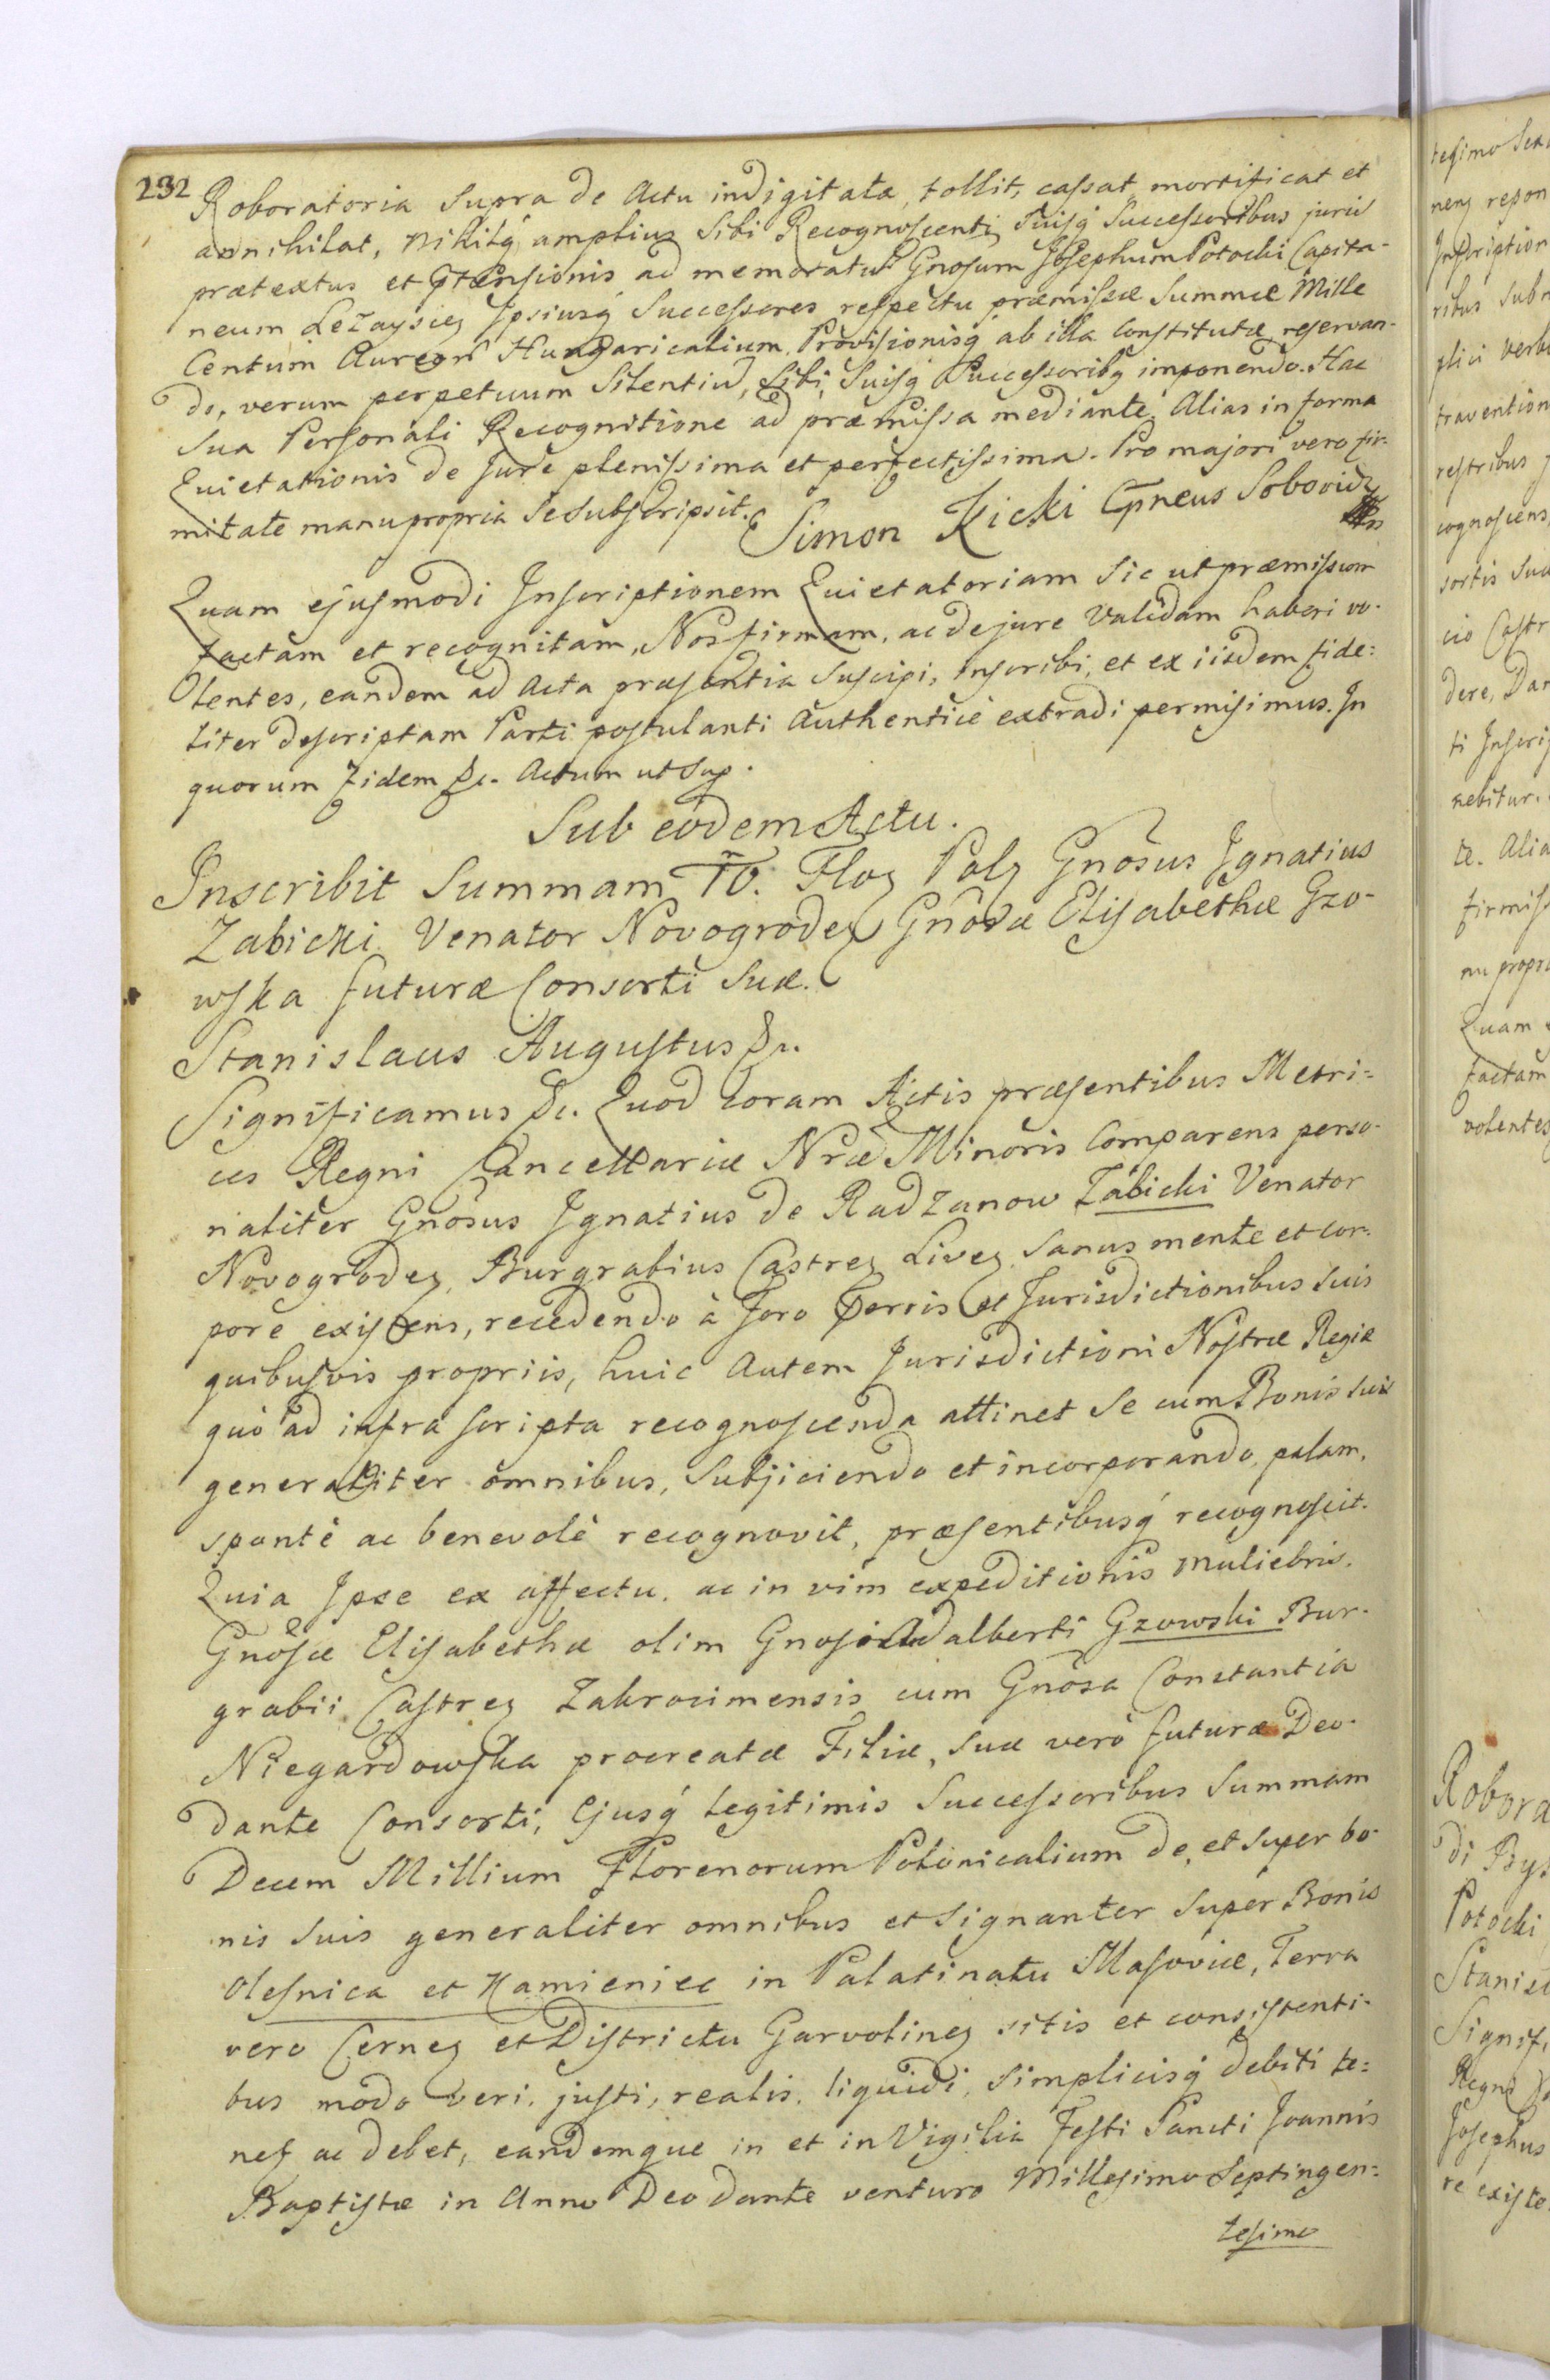 232
Roboratoria Supra de Actu indigitata, tollit, cassat mortificat et
annihilat, nihilq amplius Sibi Recognoscenti Suisq Successoribus juris
prætextus et prætensionis ad memoratum Gnosum Josephum Potocki Capita-
neum Leżaysceń Ipsiusq Successores respectu præmissæ Summæ Mille
Centum Aureorum Hungaricalium Provisionisq ab illa Constitutæ reservan-
do, verum perpetuum Silentium, Sibi, Suisq Successoribq imponendo. Hac
Sua Personali Recognitione ad præmissa mediante, Alias in forma
Quietationis de Jure plenissima et perfectissima. Pro majori vero fir-
mitate manu propria Se Subscripsit. Simon Kicki Cpneus Sobovicz
Quam ejusmodi Inscriptionem Quietatoriam Sic ut præmissum
factam et recognitam, Nos firmam, ac de jure Validam haberi vo-
lentes, eandem ad Acta præsentia Suscipi, Inscribi, et ex iisdem fide:
liter descriptam Parti postulanti Authenticè extradi permisimus. In
quorum fidem &c. Actum ut Sup.
Sub eodem Actu.
Inscribit Summam 10. Floz Polz Gnosus Ignatius
Zabicki Venator Novogrodeẏ Gnosæ Elisabethæ Gzo-
wska futuræ Consorti Suæ.
Stanislaus Augustus &c.
Significamus &c. Quod coram Actis præsentibus Metri-
ces Regni Cancellariæ Nræ Minoris Comparens perso-
naliter Gnosus Ignatius de Radzanow Zabicki Venator
Novogrodeẏ, Burgrabius Castreẏ Liveẏ, Sanus mente et cor-
pore existens, recedendo à Foro Terris et Jurisdictionibus Suis
quibusvis propriis, huic Autem Jurisdictioni Nostræ Regiæ
quò ad infra scripta recognoscenda attinet Se cum Bonis suis
generaliter omnibus, Subjiciendo et incorporando, palam,
spontè ac benevolè recognovit, præsentibusq recognoscit.
Quia Ipse ex affectu, ac in vim expeditionis muliebris.
Gnosæ Elisabethæ olim Gnosi Adalberti Gzowski Bur-
grabii Castreẏ Zakrocimensis cum Gnosa Constantia
Niegardowska procreatæ Filiæ, suæ verò futuræ Deo-
dante Consorti, Ejusq legitimis Successoribus Summam
Decem Millium Florenorum Polonicalium de, et super bo-
nis suis generaliter omnibus et Signanter Super Bonis
Olesnica et Kamieniec in Palatinatu Masoviæ, Terra
vero Cerneẏ et Districtu Garvolineẏ sitis et consistenti-
bus modo veri, justi, realis, liquidi, Simplicisq debiti te:
net ac debet, eandemque in et in Vigilia Festi Sancti Joannis
Baptistæ in Anno Deo dante venturo Millesimo Septingen:
tesimo
tesimo Sex
nens repon
Inscription
ribus Subm
plici verb
travention
restribus
cognoscens
sortis sua
cio Castr
dere, Dan
ti Inscrip
nebitur.
te. Alia
firmiss
nu propri
Quam
factam
volentes
Robora
di Bys
Potocki
Stanisl
Signif
Regni
Josephus
re existe